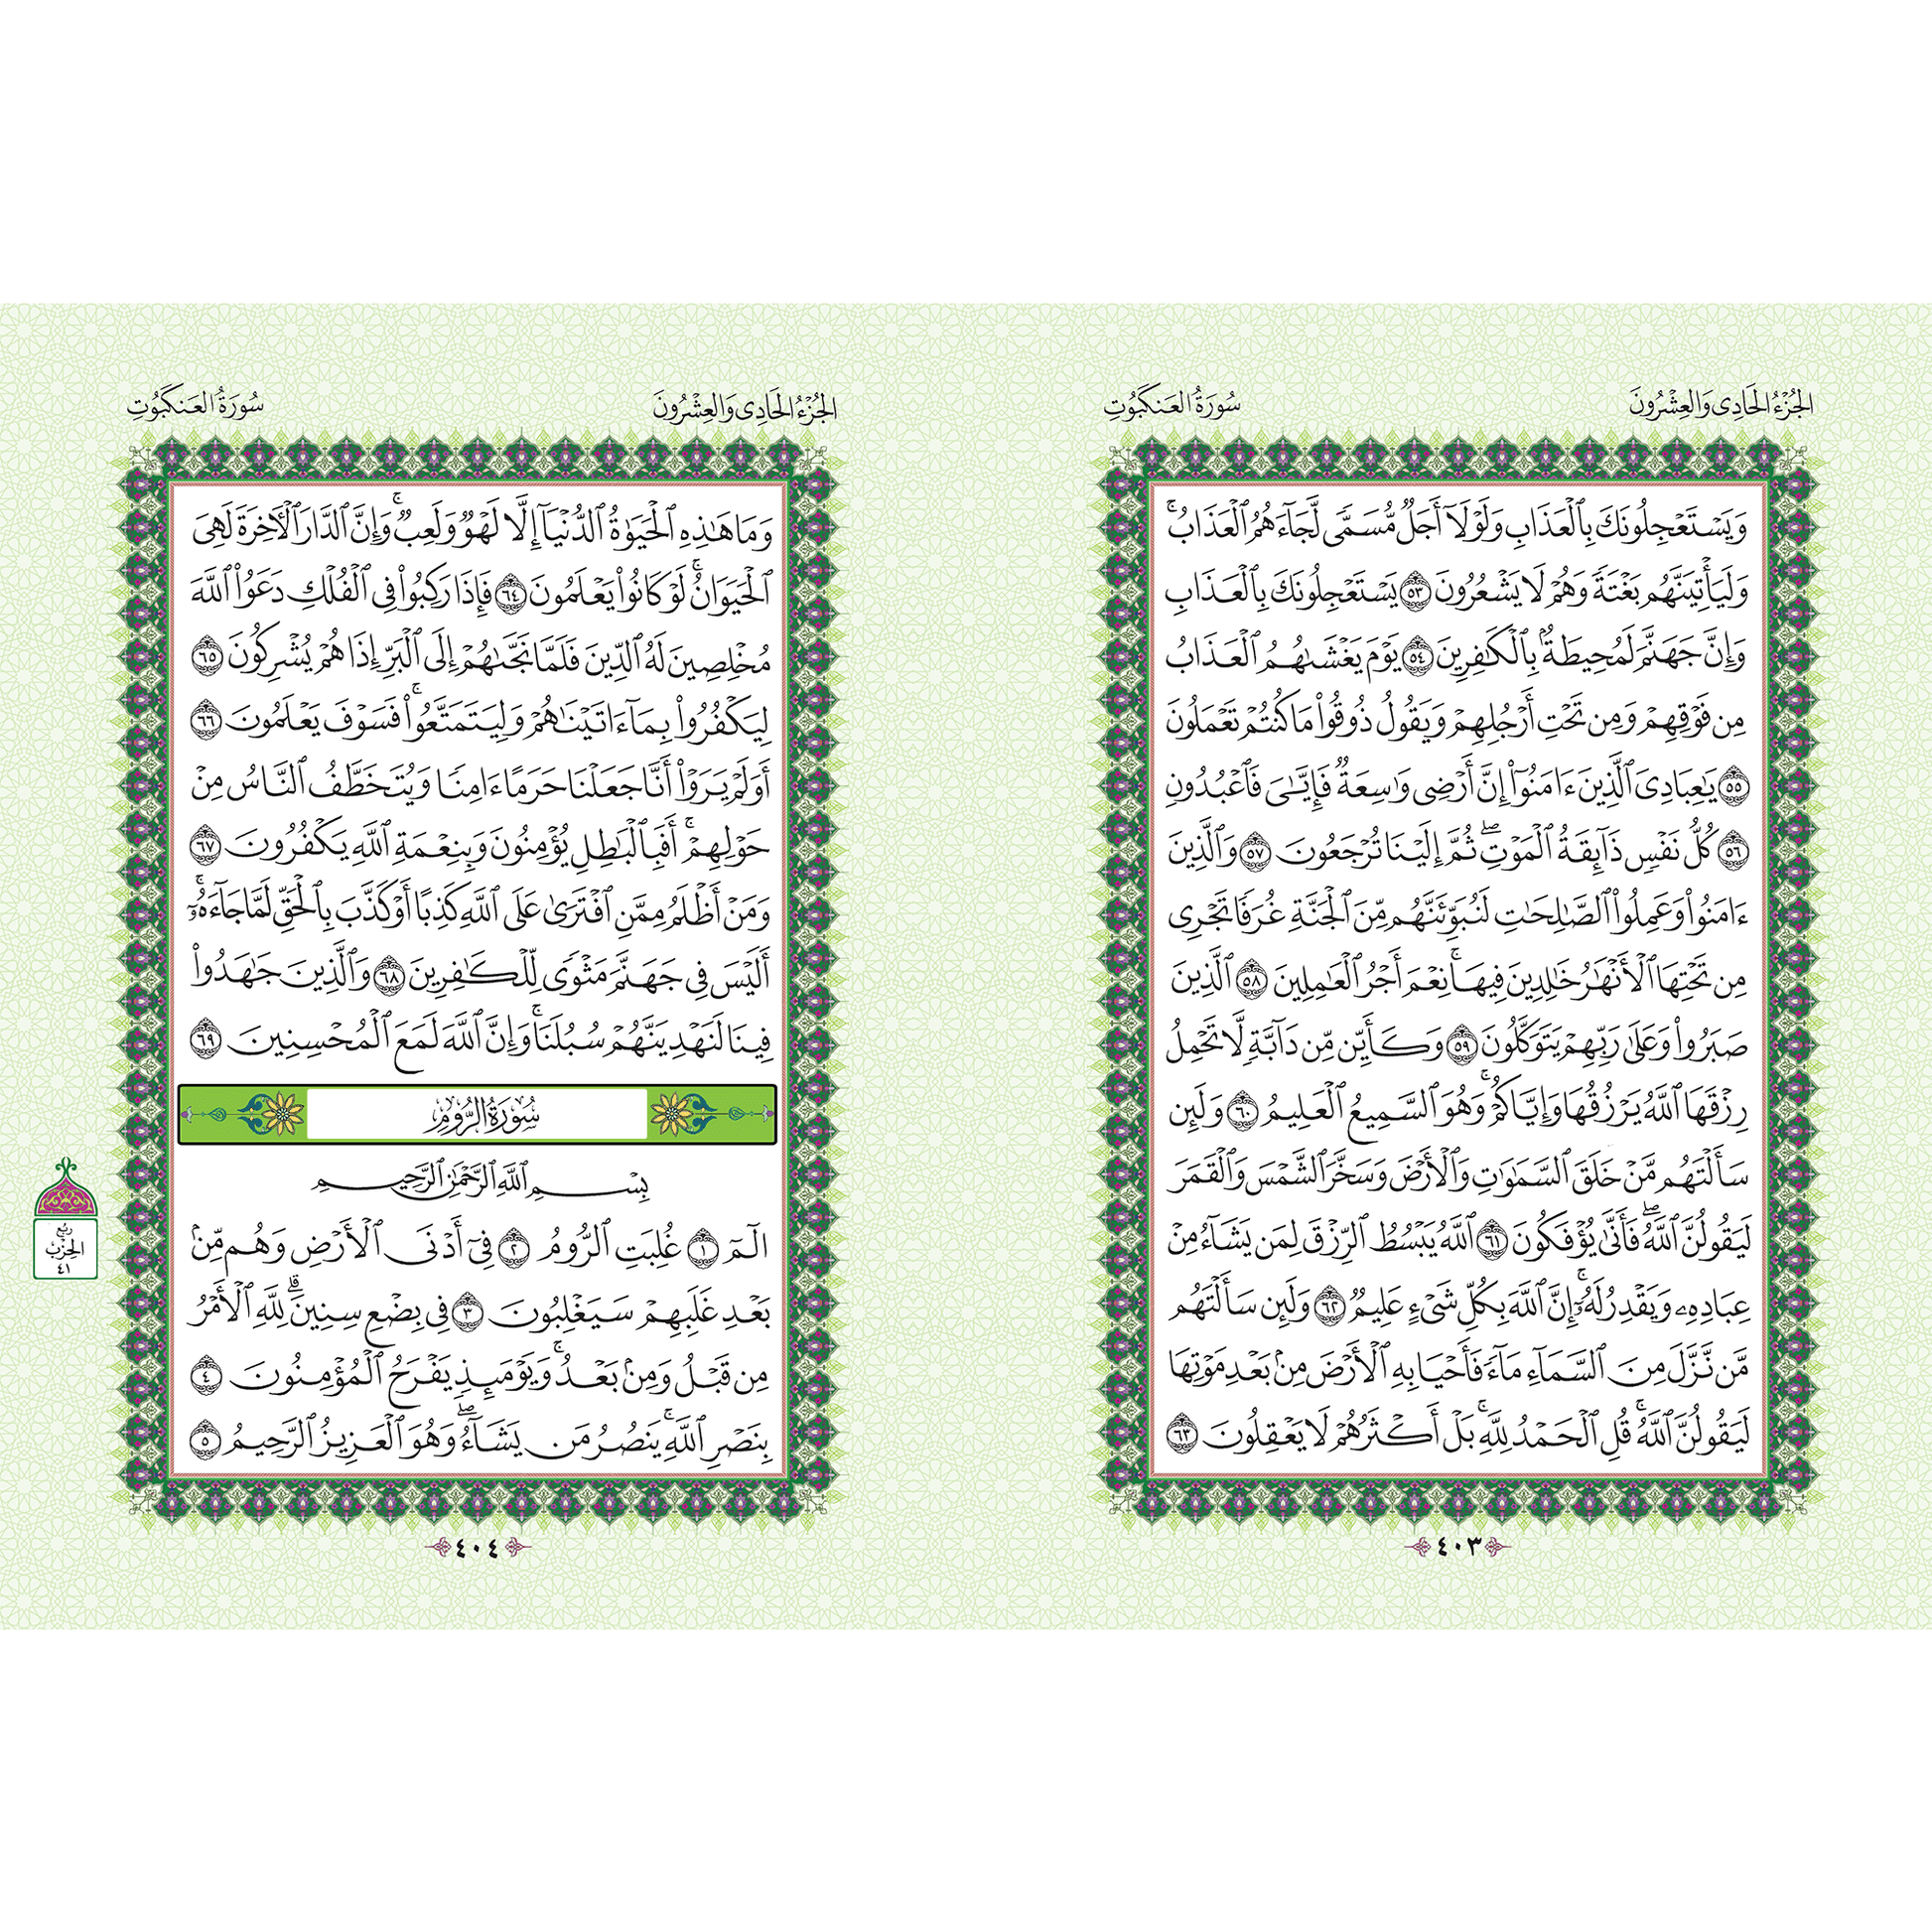 الجُزْءُ الحَادِي وَالعِشْرُونَ
سُورَةُ العَنكَبُوتِ
وَيَسْتَعْجِلُونَكَ بِٱلْعَذَابِ وَلَوْلَآ أَجَلٌ مُّسَمًّى لَّجَآءَهُمُ ٱلْعَذَابُۚ
وَلَيَأْتِيَنَّهُم بَغْتَةً وَهُمْ لَا يَشْعُرُونَ ٥٣ يَسْتَعْجِلُونَكَ بِٱلْعَذَابِ
وَإِنَّ جَهَنَّمَ لَمُحِيطَةٌۢ بِٱلْكَٰفِرِينَ ٥٤ يَوْمَ يَغْشَىٰهُمُ ٱلْعَذَابُ
مِن فَوْقِهِمْ وَمِن تَحْتِ أَرْجُلِهِمْ وَيَقُولُ ذُوقُوا۟ مَا كُنتُمْ تَعْمَلُونَ
٥٥ يَٰعِبَادِىَ ٱلَّذِينَ ءَامَنُوٓا۟ إِنَّ أَرْضِى وَٰسِعَةٌ فَإِيَّٰىَ فَٱعْبُدُونِ
٥٦ كُلُّ نَفْسٍ ذَآئِقَةُ ٱلْمَوْتِۖ ثُمَّ إِلَيْنَا تُرْجَعُونَ ٥٧ وَٱلَّذِينَ
ءَامَنُوا۟ وَعَمِلُوا۟ ٱلصَّٰلِحَٰتِ لَنُبَوِّئَنَّهُم مِّنَ ٱلْجَنَّةِ غُرَفًا تَجْرِى
مِن تَحْتِهَا ٱلْأَنْهَٰرُ خَٰلِدِينَ فِيهَاۚ نِعْمَ أَجْرُ ٱلْعَٰمِلِينَ ٥٨ ٱلَّذِينَ
صَبَرُوا۟ وَعَلَىٰ رَبِّهِمْ يَتَوَكَّلُونَ ٥٩ وَكَأَيِّن مِّن دَآبَّةٍ لَّا تَحْمِلُ
رِزْقَهَا ٱللَّهُ يَرْزُقُهَا وَإِيَّاكُمْۚ وَهُوَ ٱلسَّمِيعُ ٱلْعَلِيمُ ٦٠ وَلَئِن
سَأَلْتَهُم مَّنْ خَلَقَ ٱلسَّمَٰوَٰتِ وَٱلْأَرْضَ وَسَخَّرَ ٱلشَّمْسَ وَٱلْقَمَرَ
لَيَقُولُنَّ ٱللَّهُۖ فَأَنَّىٰ يُؤْفَكُونَ ٦١ ٱللَّهُ يَبْسُطُ ٱلرِّزْقَ لِمَن يَشَآءُ مِنْ
عِبَادِهِۦ وَيَقْدِرُ لَهُۥٓۚ إِنَّ ٱللَّهَ بِكُلِّ شَىْءٍ عَلِيمٌ ٦٢ وَلَئِن سَأَلْتَهُم
مَّن نَّزَّلَ مِنَ ٱلسَّمَآءِ مَآءً فَأَحْيَا بِهِ ٱلْأَرْضَ مِنۢ بَعْدِ مَوْتِهَا
لَيَقُولُنَّ ٱللَّهُۚ قُلِ ٱلْحَمْدُ لِلَّهِۚ بَلْ أَكْثَرُهُمْ لَا يَعْقِلُونَ ٦٣
٤٠٣
الجُزْءُ الحَادِي وَالعِشْرُونَ
سُورَةُ العَنكَبُوتِ
وَمَا هَٰذِهِ ٱلْحَيَوٰةُ ٱلدُّنْيَآ إِلَّا لَهْوٌ وَلَعِبٌۚ وَإِنَّ ٱلدَّارَ ٱلْءَاخِرَةَ لَهِىَ
ٱلْحَيَوَانُۚ لَوْ كَانُوا۟ يَعْلَمُونَ ٦٤ فَإِذَا رَكِبُوا۟ فِى ٱلْفُلْكِ دَعَوُا۟ ٱللَّهَ
مُخْلِصِينَ لَهُ ٱلدِّينَ فَلَمَّا نَجَّىٰهُمْ إِلَى ٱلْبَرِّ إِذَا هُمْ يُشْرِكُونَ ٦٥
لِيَكْفُرُوا۟ بِمَآ ءَاتَيْنَٰهُمْ وَلِيَتَمَتَّعُوا۟ۚ فَسَوْفَ يَعْلَمُونَ ٦٦
أَوَلَمْ يَرَوْا۟ أَنَّا جَعَلْنَا حَرَمًا ءَامِنًا وَيُتَخَطَّفُ ٱلنَّاسُ مِنْ
حَوْلِهِمْۚ أَفَبِٱلْبَٰطِلِ يُؤْمِنُونَ وَبِنِعْمَةِ ٱللَّهِ يَكْفُرُونَ ٦٧
وَمَنْ أَظْلَمُ مِمَّنِ ٱفْتَرَىٰ عَلَى ٱللَّهِ كَذِبًا أَوْ كَذَّبَ بِٱلْحَقِّ لَمَّا جَآءَهُۥٓۚ
أَلَيْسَ فِى جَهَنَّمَ مَثْوًى لِّلْكَٰفِرِينَ ٦٨ وَٱلَّذِينَ جَٰهَدُوا۟
فِينَا لَنَهْدِيَنَّهُمْ سُبُلَنَاۚ وَإِنَّ ٱللَّهَ لَمَعَ ٱلْمُحْسِنِينَ ٦٩
سُورَةُ الرُّومِ
بِسْمِ ٱللَّهِ ٱلرَّحْمَٰنِ ٱلرَّحِيمِ
الٓمٓ ١ غُلِبَتِ ٱلرُّومُ ٢ فِىٓ أَدْنَى ٱلْأَرْضِ وَهُم مِّنۢ
بَعْدِ غَلَبِهِمْ سَيَغْلِبُونَ ٣ فِى بِضْعِ سِنِينَۗ لِلَّهِ ٱلْأَمْرُ
مِن قَبْلُ وَمِنۢ بَعْدُۚ وَيَوْمَئِذٍ يَفْرَحُ ٱلْمُؤْمِنُونَ ٤
بِنَصْرِ ٱللَّهِۚ يَنصُرُ مَن يَشَآءُۖ وَهُوَ ٱلْعَزِيزُ ٱلرَّحِيمُ ٥
رُبْعُ
الحِزْبِ
٤١
٤٠٤